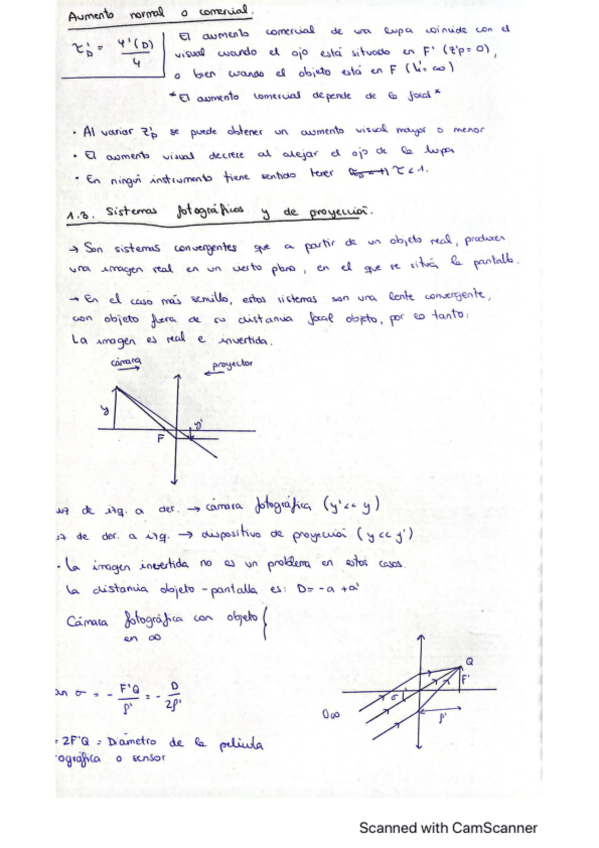 Aumento normal o comercial.
τ'D = 4'(D) / 4
El aumento comercial de una lupa coincide con el
visual cuando el ojo está situado en F' (z'p=0),
o bien cuando el objeto está en F (L'=∞)
*El aumento comercial depende de la focal*
· Al variar z'p se puede obtener un aumento visual mayor o menor
· El aumento visual decrece al alejar el ojo de la lupa
· En ningún instrumento tiene sentido tener τ<1.
1.3. Sistemas fotográficos y de proyección.
→ Son sistemas convergentes que a partir de un objeto real, producen
una imagen real en un cierto plano, en el que se sitúa la pantalla.
→ En el caso más sencillo, estos sistemas son una lente convergente,
con objeto fuera de su distancia focal objeto, por lo tanto:
La imagen es real e invertida.
cámara → ← proyector
y F y'
de izq. a der. → cámara fotográfica (y'<< y)
de der. a izq. → dispositivo de proyección (y << y')
· La imagen invertida no es un problema en estos casos.
La distancia objeto-pantalla es: D=-a+a'
Cámara fotográfica con objeto {
en ∞
an σ = - F'Q / f' = - D / 2f'
Q
F'
σ
O∞
f'
= 2F'Q = Diámetro de la película
ográfica o sensor
Scanned with CamScanner